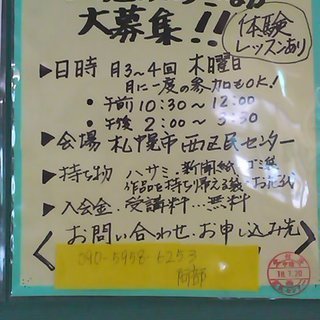 大募集!!
体験
レッスンあり
▶日時 月3〜4回 木曜日
月に一度の参加もOK!
・午前10:30〜12:00
・午後 2:00〜3:30
▶会場 札幌市西区民センター
▶持ち物 ハサミ・新聞紙・ゴミ袋
作品を持ち帰る袋・お花代
▶入会金・受講料…無料
お問い合わせ・お申し込み先
090-5958-6253
阿部
18.7.20